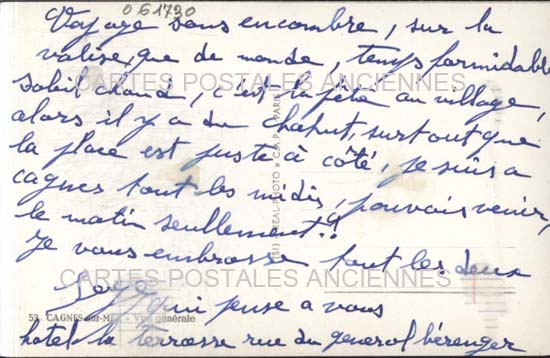 061730
Voyage sans encombre, sur la
valise, que de monde, temps formidable
soleil chaud, c'est la fête au village,
CARTES POSTALES ANCIENNES
alors il y a du chahut, surtout que
la place est juste à côté, je suis a
cagnes tout les midis, pouvais venir,
le matin seullement!!
(51) REAL-PHOTO C.A.P. PARIS
Je vous embrasse tout les deux
CARTES POSTALES ANCIENNES
qui pense a vous
53 CAGNES-sur-MER - Vue générale
hotel la terrasse rue du general bérenger